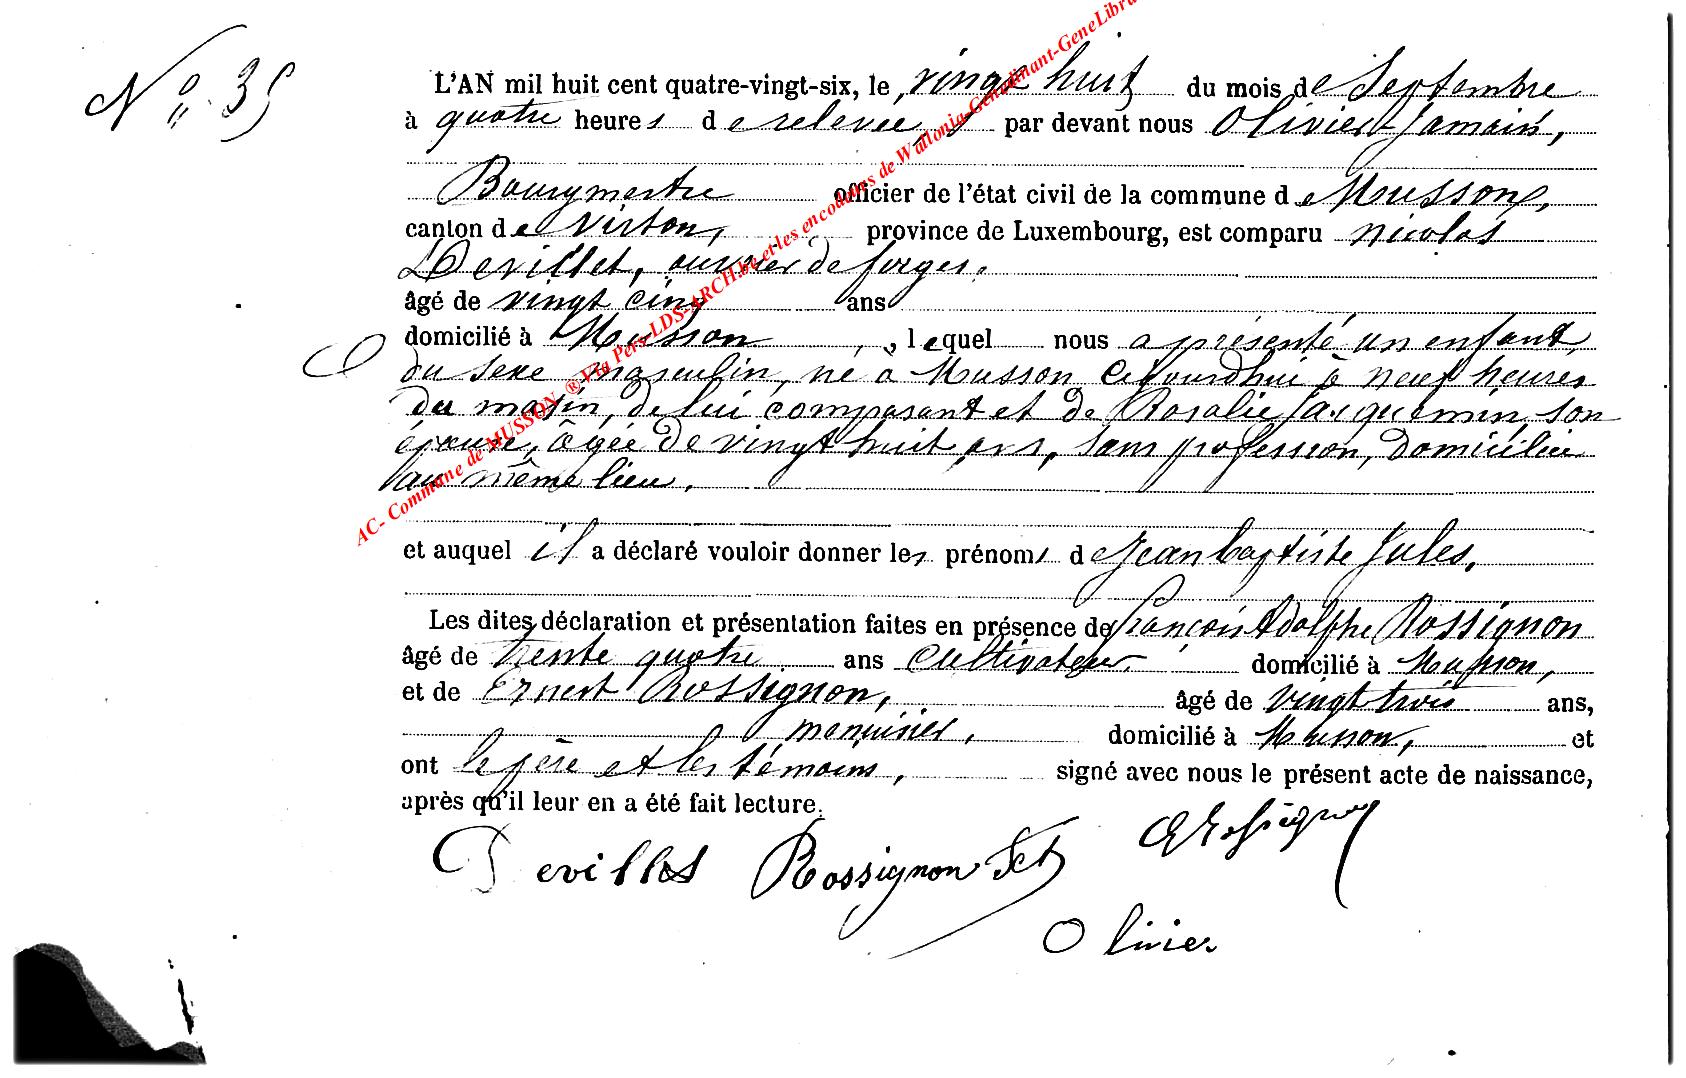 N° 35
L'AN mil huit cent quatre-vingt-six, le vingt huit du mois de Septembre
à quatre heures de relevée, par devant nous Olivier Jamain,
Bourgmestre officier de l'état civil de la commune de Musson,
canton de Virton, province de Luxembourg, est comparu Nicolas
Devillet, ouvrier de forges.
âgé de vingt cinq ans
domicilié à Musson, lequel nous a présenté un enfant
du sexe masculin, né à Musson cejourdhui à neuf heures
du matin, de lui comparant et de Rosalie Jacquemin, son
épouse, âgée de vingt huit ans, sans profession, domiciliée
au même lieu.
et auquel il a déclaré vouloir donner les prénoms de Jean baptiste Jules.
Les dites déclaration et présentation faites en présence de françois Adolphe Rossignon
âgé de trente quatre ans Cultivateur domicilié à Musson,
et de Ernest Rossignon, âgé de vingt trois ans,
menuisier, domicilié à Musson, et
ont le père et les témoins, signé avec nous le présent acte de naissance,
après qu'il leur en a été fait lecture.
Devillet Rossignon ERossignon
Olivier
AC- Commune de MUSSON ® Via Pers-LDS-ARCH.be et les encodeurs de Wallonia-Genedinant-GeneLibra